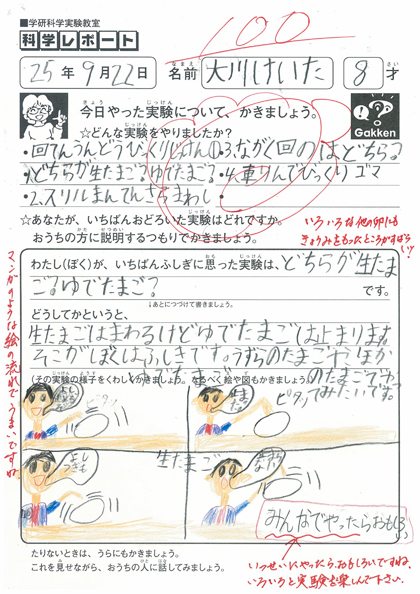 ■学研科学実験教室
科学レポート
100
25年9月22日 名前 大川けいた 8才
なまえ
さい
きょう じっけん
今日やった実験について、かきましょう。
☆どんな実験をやりましたか?
Gakken
・回てんうんどうびっくりじっけん①
・3.ながく回のはどちら?
・1どちらが生たまご?ゆでたまご?
・4.車りんでびっくりゴマ
・2.スリルまんてんさらまわし
☆あなたが、いちばんおどろいた実験はどれですか。
おうちの方に説明するつもりでかきましょう。
いろいろな他の卵にも
きょうみをもったところがすばらしい!!
わたし(ぼく)が、いちばんふしぎに思った実験は、どちらが生たま
ご?ゆでたまご? です。
↓あとにつづけて書きましょう。
どうしてかというと、
生たまごはまわるけどゆでたまごは止まります。
そこがぼくはふしぎです。うずらのたまごや、ほか
のたまごでやってみたいです。
(その実験の様子をくわしくかきましょう。なるべく絵や図もかきましょう。)
ゆでたまご
ピタッ
ピタッ
生たまご
みんなでやったらおもしろい
マンガのような絵の流れでうまいですね
たりないときは、うらにもかきましょう。
これを見せながら、おうちの人に話してみましょう。
いっせいにやったらおもしろいですね。
いろいろと実験を楽しんで下さい。